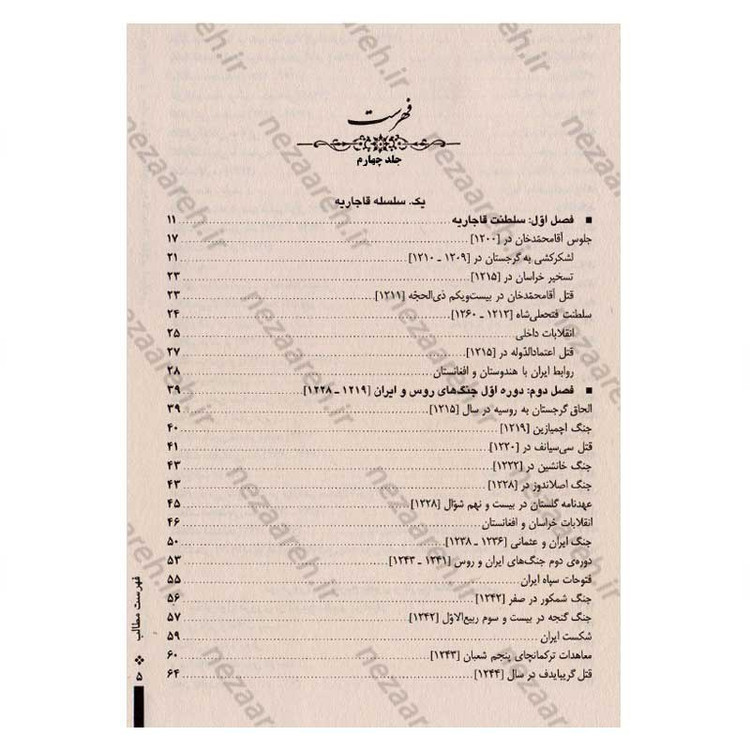 فهرست
جلد چهارم
یک. سلسله قاجاریه
■ فصل اوّل: سلطنت قاجاریه ........ ۱۱
جلوس آقامحمّدخان در [۱۲۰۰] ........ ۱۷
لشکرکشی به گرجستان در [۱۲۰۹ ـ ۱۲۱۰] ........ ۲۱
تسخیر خراسان در [۱۲۱۵] ........ ۲۳
قتل آقامحمّدخان در بیست‌ویکم ذی‌الحجّه [۱۲۱۱] ........ ۲۳
سلطنت فتحعلی‌شاه [۱۲۱۲ ـ ۱۲۶۰] ........ ۲۴
انقلابات داخلی ........ ۲۵
قتل اعتمادالدّوله در [۱۲۱۵] ........ ۲۷
روابط ایران با هندوستان و افغانستان ........ ۲۸
■ فصل دوم: دوره اوّل جنگ‌های روس و ایران [۱۲۱۹ ـ ۱۲۲۸] ........ ۳۹
الحاق گرجستان به روسیه در سال [۱۲۱۵] ........ ۳۹
جنگ اچمیازین [۱۲۱۹] ........ ۴۰
قتل سی‌سیانف در [۱۲۲۰] ........ ۴۱
جنگ خانشین در [۱۲۲۲] ........ ۴۳
جنگ اصلاندوز در [۱۲۲۸] ........ ۴۳
عهدنامه گلستان در بیست و نهم شوّال [۱۲۲۸] ........ ۴۵
انقلابات خراسان و افغانستان ........ ۴۶
جنگ ایران و عثمانی [۱۲۳۶ ـ ۱۲۳۸] ........ ۵۰
دوره‌ی دوم جنگ‌های ایران و روس [۱۲۴۱ ـ ۱۲۴۳] ........ ۵۳
فتوحات سپاه ایران ........ ۵۵
جنگ شمکور در صفر [۱۲۴۲] ........ ۵۶
جنگ گنجه در بیست و سوم ربیع‌الاوّل [۱۲۴۲] ........ ۵۷
شکست ایران ........ ۵۹
معاهدات ترکمانچای پنجم شعبان [۱۲۴۳] ........ ۶۰
قتل گریبایدف در سال [۱۲۴۴] ........ ۶۴
فهرست مطالب ❖ ۵
nezaareh.ir